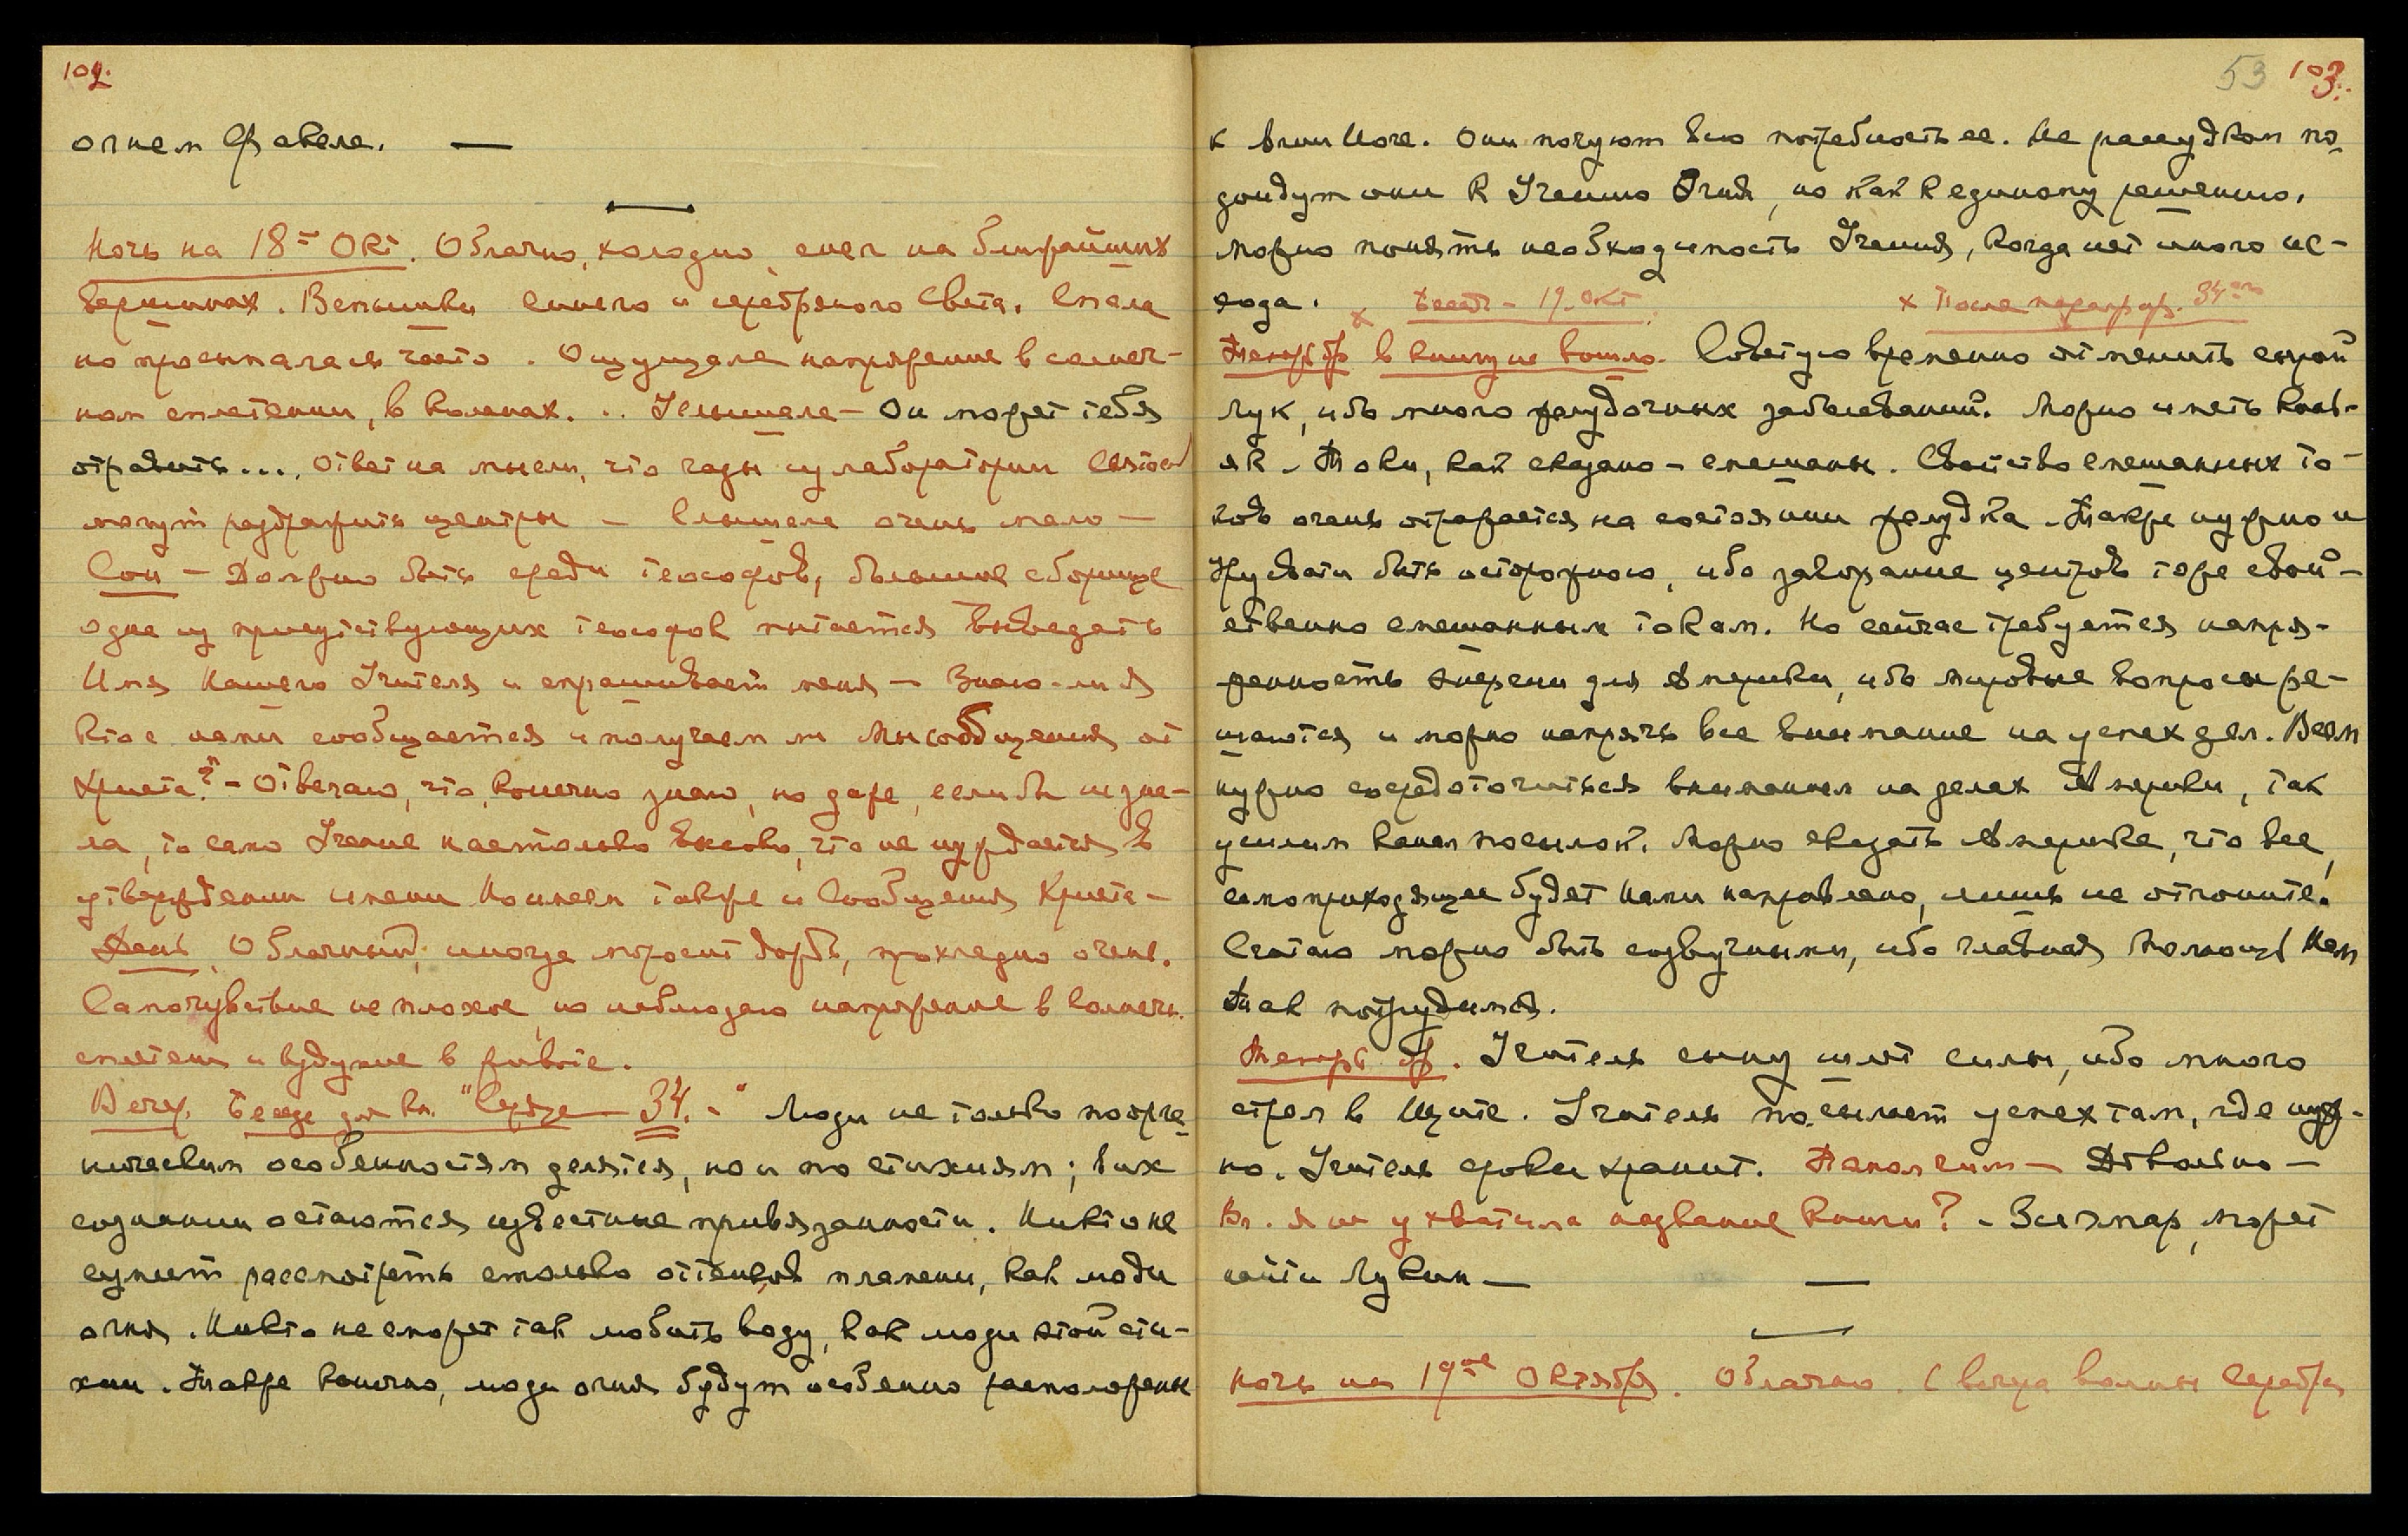 102.
огнем факела. —
Ночь на 18-ое Окт. Облачно, холодно, снег на ближайших
вершинах. Вспышки синего и серебряного света. Спала
но просыпалась часто. Ощущала напряжение в солнеч-
ном сплетении, в коленах. .. Услышала – Он может тебя
отравить... Ответ на мысли, что газы из лаборатории
могут раздражить центры – Слышала очень мало –
Сон – Должно быть среди теософов, большое сборище
одна из присутствующих теософок пытается выведать
Имя Нашего Учителя и спрашивает меня – Знаю-ли я
кто с нами сообщается и получаем ли мы сообщения от
Христа? – Отвечаю, что, конечно знаю, но даже, если бы не зна-
ла, то само Учение настолько высоко, что не нуждается в
утверждении имени Но имеем также и Сообщения Христа –
День. Облачный, иногда моросит дождь, прохладно очень.
Самочувствие не плохое, но наблюдаю напряжение в солнечн.
сплетен и вздутие в животе.
Вечер. Беседа для кн. "Сердце – 34. –" Люди не только по орга
ническим особенностям делятся, но и по стихиям; в их
сознании остаются известные привязанности. Никто не
сумеет рассмотреть столько оттенков пламени, как люди
огня. Никто не сможет так любить воду, как люди этой сти-
хии. Также конечно, люди огня будут особенно расположены
53 103.
к Агни Йоге. Они почуют всю потребность ее. Не рассудком по
дойдут они к Учению Огня, но как к единому решению.
Можно понять необходимость Учения, когда нет иного ис-
хода. x Беседа – 19. Окт. x После параграф. 34-го
Теперь др. в книгу не вошло. Советую временно отменить сырой
лук, ибо много желудочных заболеваний. Можно иметь конь-
як – Токи, как сказано – смешаны. Свойство смешанных то-
ков очень отражается на состоянии желудка – Также нужно и
Урусвати быть осторожною, ибо заворание центров тоже свой-
ственно смешанным токам. Но сейчас требуется напря-
женность энергии для Америки, ибо мировые вопросы ре-
шаются и можно напрячь все внимание на успех дел. Всем
нужно сосредоточиться вниманием на делах Америки, так
усилим канал посылок. Можно сказать Америке, что все,
самоприходящее будет Нами направлено, лишь не отгоните.
Считаю можно быть созвучными, ибо главная помощь Нам
Так потрудимся.
Теперь др. Учитель сыну шлет силы, ибо много
стрел в Щите. Учитель посылает успех там, где нуж-
но. Учитель сроки хранит. Также – Довольно –
Вл. я не ухватила название книги? – может
найти Лукин —
Ночь на 19-ое Октября. Облачно. С вечера волны серебра